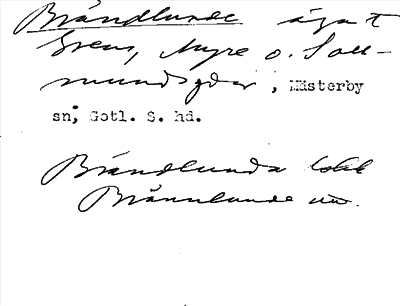 Brändlunde ägat
Grens, Myre o. Soll-
mundsgdar, Mästerby
sn, Gotl. S. hd.
Brändlunda
Brännlunde